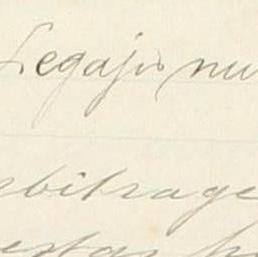 Legajo nu
rbitrage
estas h